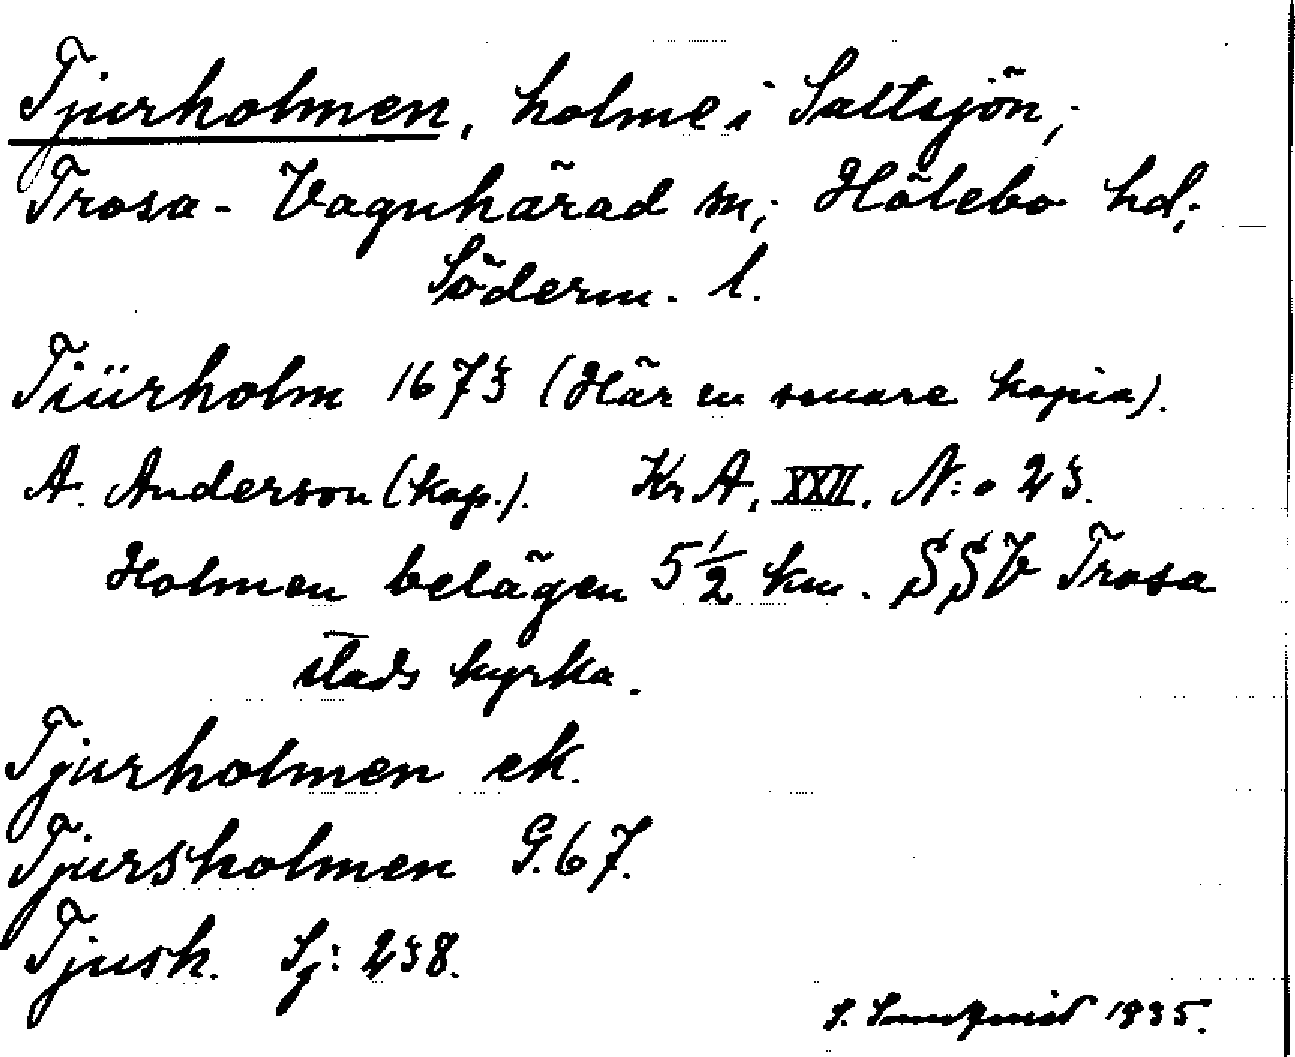 Tjurholmen, holme i Saltsjön,
Trosa-Vagnhärad sn; Hölebo hd;
Söderm. l.
Tiürholm 1673 (Här en senare kopia).
A. Anderson (kop.). Kr.A. XXII. N:o 23.
Holmen belägen 5 1/2 km. SSV Trosa
stads kyrka.
Tjurholmen ek.
Tjursholmen G. 67.
Tjursh. Sj: 238.
S. 1935.